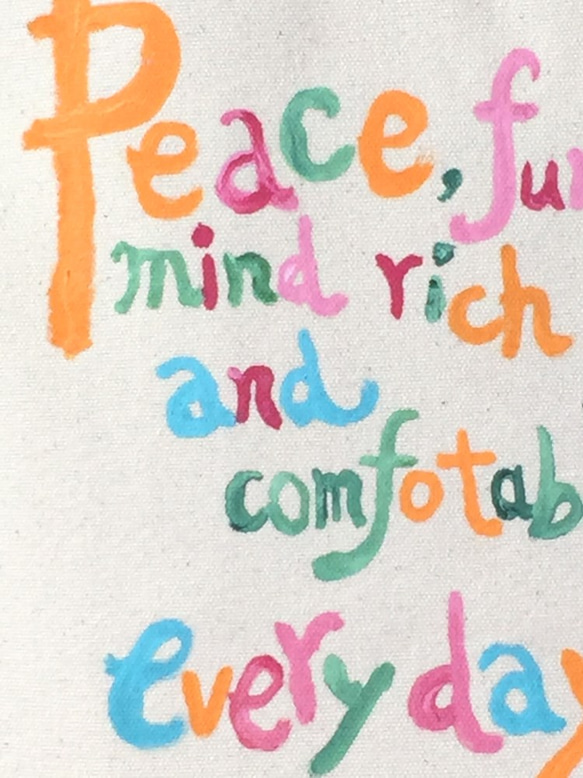 Peace, fu
mind rich
and
comfotab
every day